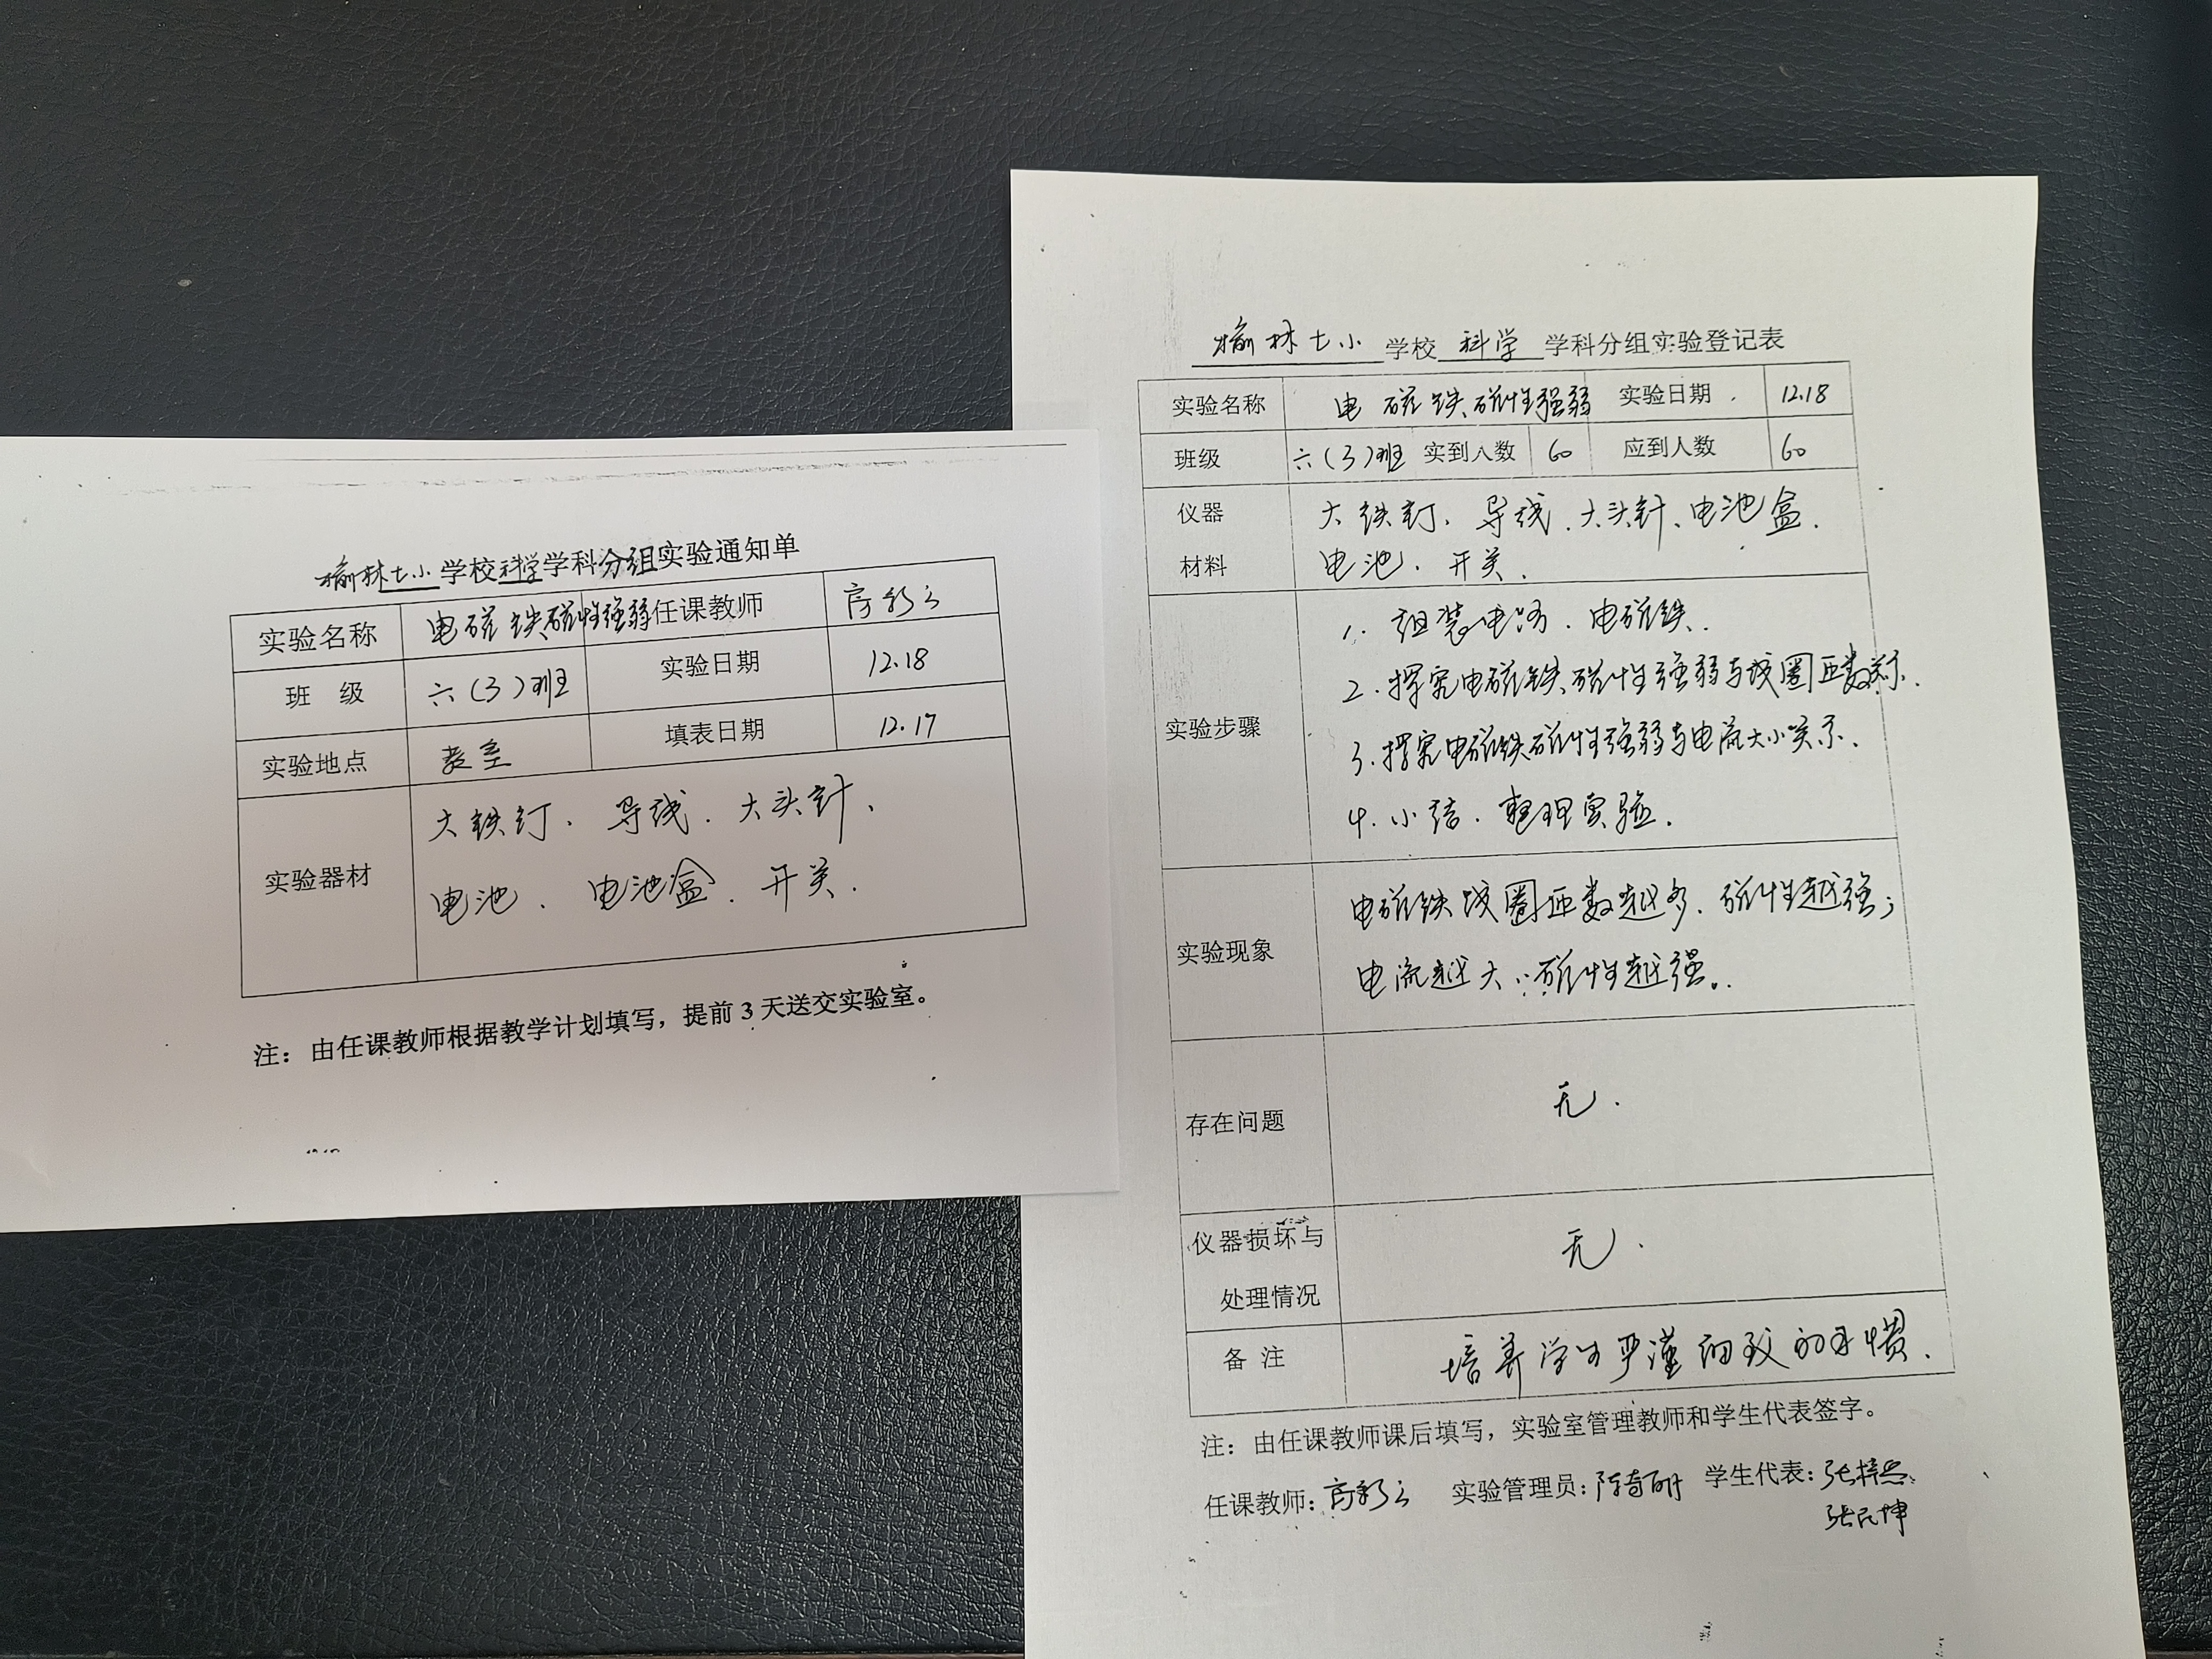 榆林七小学校科学学科分组实验通知单
实验名称 电磁铁磁性强弱 任课教师 高彩云
班 级 六(3)班 实验日期 12.18
实验地点 教室 填表日期 12.17
实验器材 大铁钉、导线、大头针、
电池、电池盒、开关.
注：由任课教师根据教学计划填写，提前3天送交实验室。
榆林七小 学校 科学 学科分组实验登记表
实验名称 电磁铁磁性强弱 实验日期 12.18
班级 六(3)班 实到人数 60 应到人数 60
仪器 大铁钉、导线、大头针、电池盒、
材料 电池、开关.
实验步骤
1. 组装电路、电磁铁.
2. 探究电磁铁磁性强弱与线圈匝数关系.
3. 探究电磁铁磁性强弱与电流大小关系.
4. 小结、整理实验.
实验现象
电磁铁线圈匝数越多、磁性越强;
电流越大、磁性越强.
存在问题 无.
仪器损坏与
处理情况 无.
备 注 培养学生严谨细致的习惯.
注：由任课教师课后填写，实验室管理教师和学生代表签字。
任课教师: 高彩云 实验管理员: 学生代表: 张
张